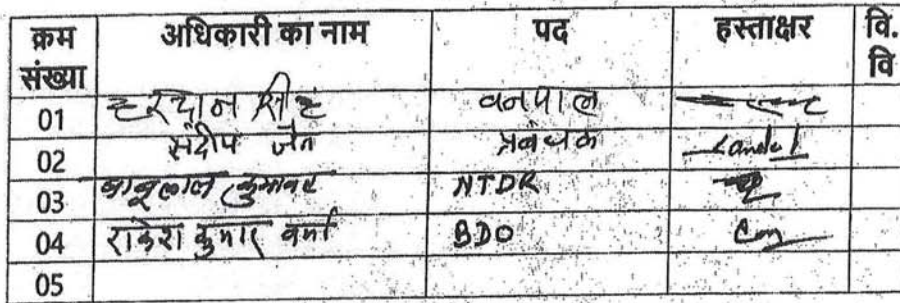 क्रम संख्या अधिकारी का नाम पद हस्ताक्षर वि. वि
01 वनपाल
02 संदीप जैन प्रबंधक
03 बाबूलाल कुमावत NTDR
04 राकेश कुमार वर्मा BDO
05